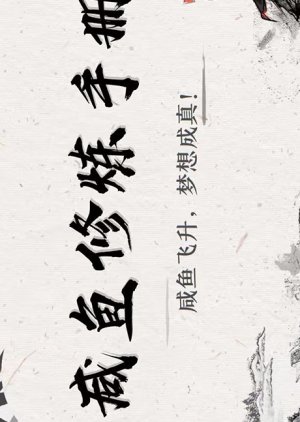 咸鱼修炼手册
咸鱼飞升，梦想成真！